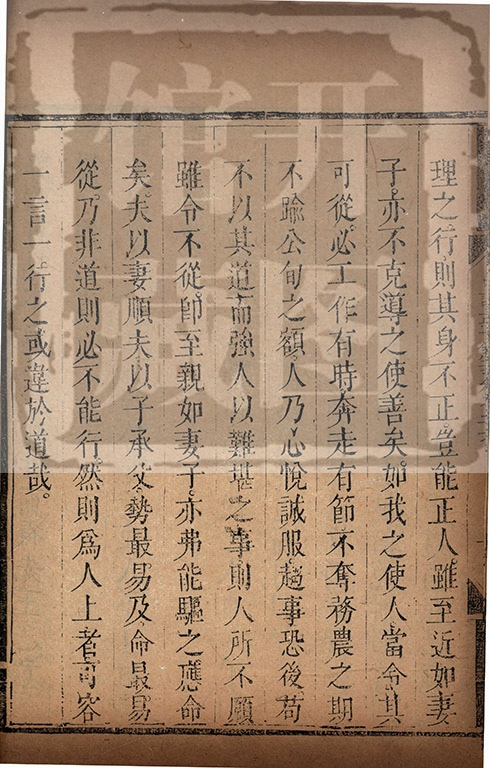 理之行則其身不正豈能正人雖至近如妻
子亦不克導之使善矣如我之使人當令其
可從必工作有時奔走有節不奪務農之期
不踰公旬之額人乃心悅誠服趨事恐後苟
不以其道而強人以難堪之事則人所不願
雖令不從卽至親如妻子亦弗能驅之應命
矣夫以妻順夫以子承父勢最易及命最易
從乃非道則必不能行然則爲人上者可容
一言一行之或違於道哉